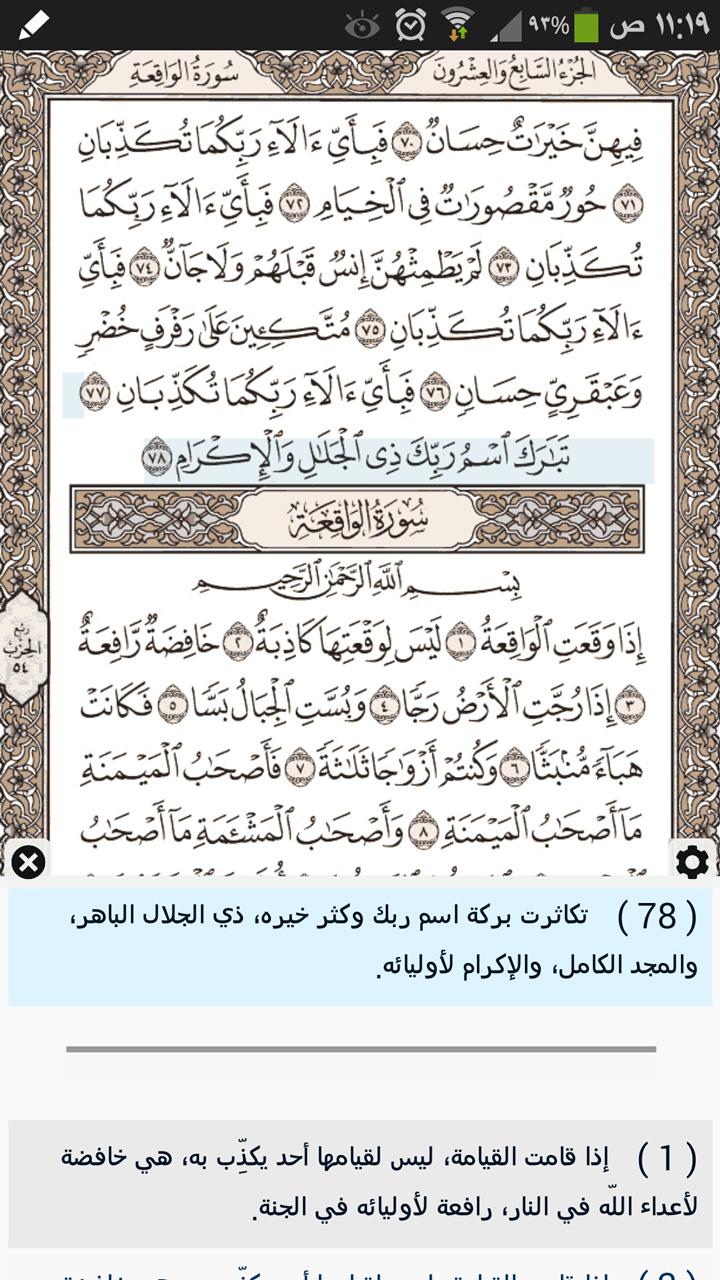 ١١:١٩ ص ٩٣%
الجُزْءُ السَّابِعُ وَالعِشْرُونَ
سُورَةُ الوَاقِعَةِ
فِيهِنَّ خَيْرَٰتٌ حِسَانٌ ٧٠ فَبِأَيِّ ءَالَآءِ رَبِّكُمَا تُكَذِّبَانِ
٧١ حُورٌ مَّقْصُورَٰتٌ فِى ٱلْخِيَامِ ٧٢ فَبِأَيِّ ءَالَآءِ رَبِّكُمَا
تُكَذِّبَانِ ٧٣ لَمْ يَطْمِثْهُنَّ إِنسٌ قَبْلَهُمْ وَلَا جَآنٌّ ٧٤ فَبِأَيِّ
ءَالَآءِ رَبِّكُمَا تُكَذِّبَانِ ٧٥ مُتَّكِـِٔينَ عَلَىٰ رَفْرَفٍ خُضْرٍ
وَعَبْقَرِيٍّ حِسَانٍ ٧٦ فَبِأَيِّ ءَالَآءِ رَبِّكُمَا تُكَذِّبَانِ ٧٧
تَبَٰرَكَ ٱسْمُ رَبِّكَ ذِى ٱلْجَلَٰلِ وَٱلْإِكْرَامِ ٧٨
سُورَةُ الوَاقِعَةِ
بِسْمِ ٱللَّهِ ٱلرَّحْمَٰنِ ٱلرَّحِيمِ
إِذَا وَقَعَتِ ٱلْوَاقِعَةُ ١ لَيْسَ لِوَقْعَتِهَا كَاذِبَةٌ ٢ خَافِضَةٌ رَّافِعَةٌ
٣ إِذَا رُجَّتِ ٱلْأَرْضُ رَجًّا ٤ وَبُسَّتِ ٱلْجِبَالُ بَسًّا ٥ فَكَانَتْ
هَبَآءً مُّنۢبَثًّا ٦ وَكُنتُمْ أَزْوَٰجًا ثَلَٰثَةً ٧ فَأَصْحَٰبُ ٱلْمَيْمَنَةِ
مَآ أَصْحَٰبُ ٱلْمَيْمَنَةِ ٨ وَأَصْحَٰبُ ٱلْمَشْـَٔمَةِ مَآ أَصْحَٰبُ
ربع
الحزب
٥٤
( 78 ) تكاثرت بركة اسم ربك وكثر خيره، ذي الجلال الباهر،
والمجد الكامل، والإكرام لأوليائه.
( 1 ) إذا قامت القيامة، ليس لقيامها أحد يكذِّب به، هي خافضة
لأعداء اللّه في النار، رافعة لأوليائه في الجنة.